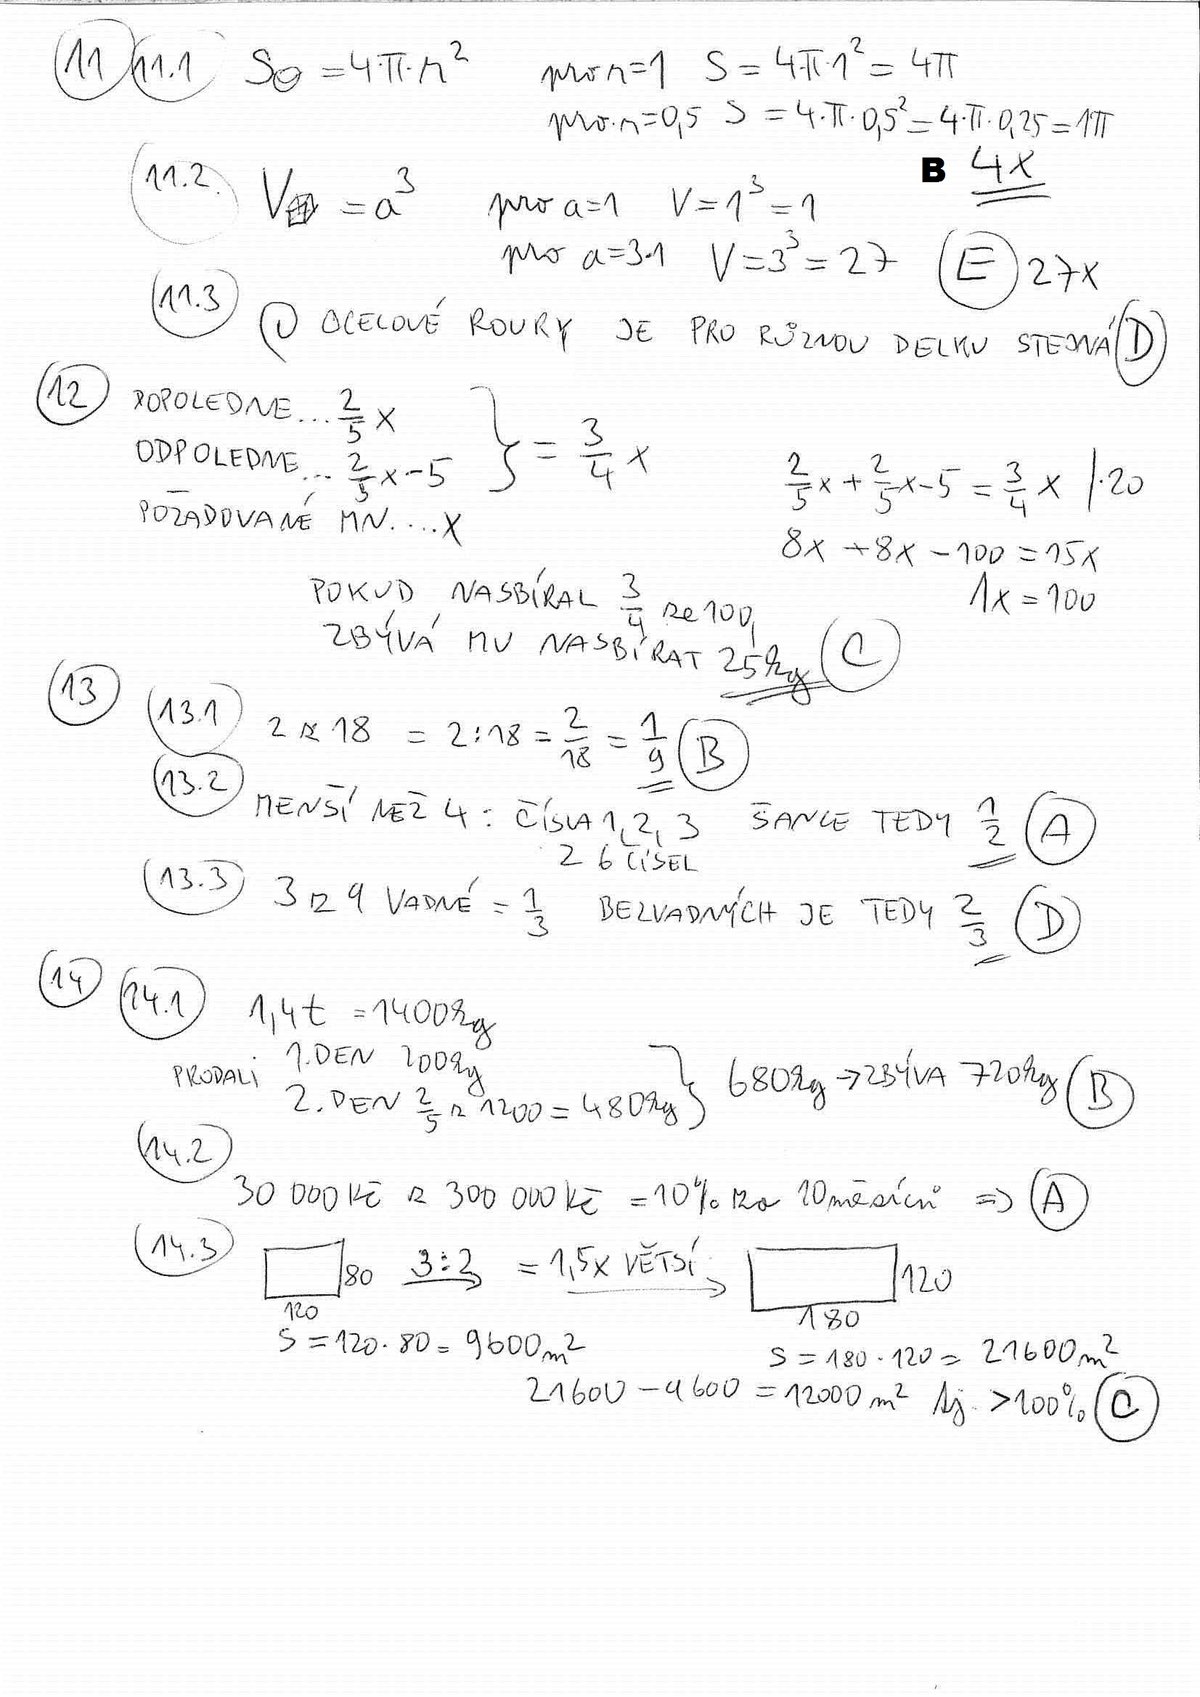 11 11.1 S = 4·π·r² pro r=1 S = 4·π·1² = 4π
pro r=0,5 S = 4·π·0,5² = 4·π·0,25 = 1π
B 4x
11.2. V = a³ pro a=1 V=1³=1
pro a=3·1 V=3³=27 E 27x
11.3 OCELOVÉ ROURY JE PRO RŮZNOU DELKU STEJNÁ D
12 DOPOLEDNE... 2/5 x
ODPOLEDNE... 2/5 x-5 } = 3/4 x
POŽADOVANÉ MN....X
2/5 x + 2/5 x-5 = 3/4 x /·20
8x +8x -100 =15x
1x = 100
POKUD NASBÍRAL 3/4 ze 100,
ZBÝVÁ MU NASBÍRAT 25kg C
13 13.1 2 z 18 = 2:18 = 2/18 = 1/9 B
13.2 MENŠÍ NEŽ 4 : ČÍSLA 1, 2, 3 ŠANCE TEDY 1/2 A
Z 6 ČÍSEL
13.3 3 z 9 VADNÉ = 1/3 BEZVADNÝCH JE TEDY 2/3 D
14 14.1 1,4t = 1400kg
PRODALI 1.DEN 200kg
2. DEN 2/5 z 1200 = 480kg } 680kg → ZBÝVA 720kg B
14.2
30 000 Kč z 300 000 Kč = 10% za 10 měsíců => A
14.3 80 3:2 = 1,5x VĚTŠÍ 120
120 180
S = 120·80 = 9600m²
S = 180·120 = 21600m²
21600 - 9600 = 12000m² tj. >100% C